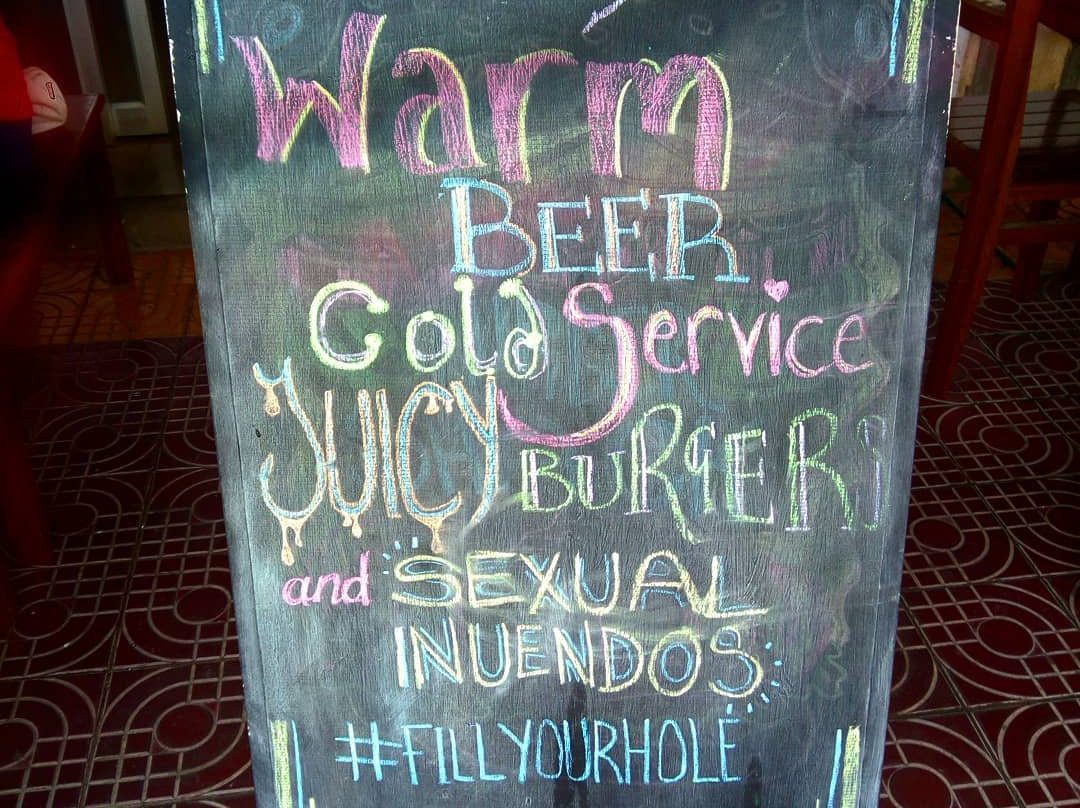 Warm
BEER
Cold Service
JUICY BURGERS
and SEXUAL
INUENDOS
#FILLYOURHOLE